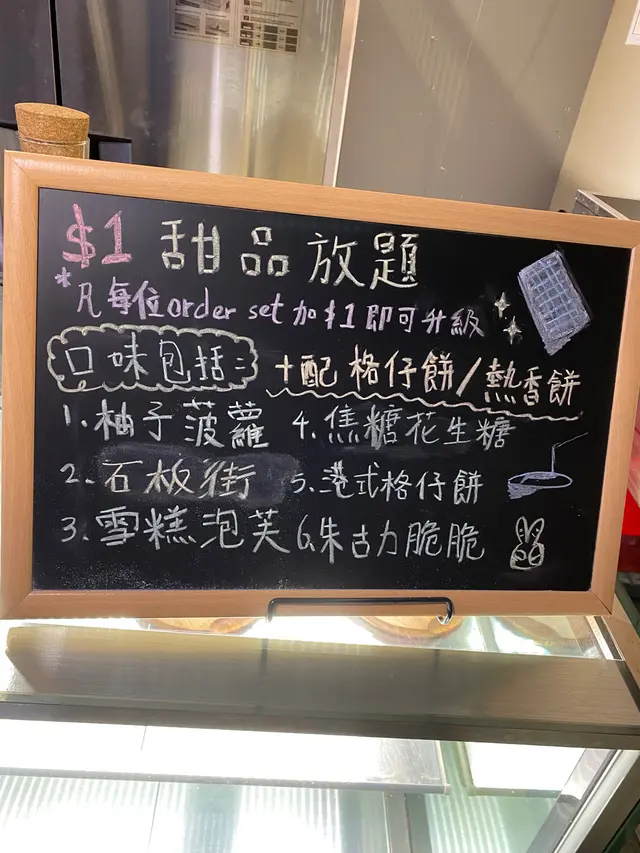 $1 甜品放題
*凡每位order set加$1即可升級
口味包括:
+配格仔餅/熱香餅
1. 柚子菠蘿
4. 焦糖花生糖
2. 石板街
5. 港式格仔餅
3. 雪糕泡芙
6. 朱古力脆脆